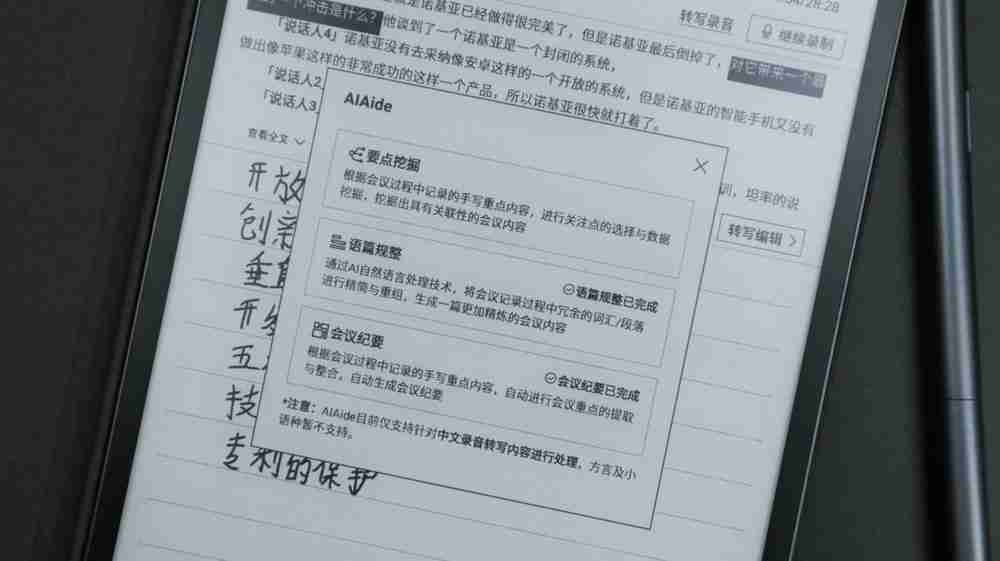 28:28
转写录音
继续录制
是诺基亚已经做得很完美了，但是诺基亚最后倒掉了，对它带来一个最
个冲击是什么？他谈到了一个诺基亚是一个封闭的系统，
「说话人4」诺基亚没有去采纳像安卓这样的一个开放的系统，但是诺基亚的智能手机又没有
做出像苹果这样的非常成功的这样一个产品，所以诺基亚很快就打着了。
「说话人2
「说话人3
训，坦率的说
查看全文
转写编辑
AIAide
要点挖掘
根据会议过程中记录的手写重点内容，进行关注点的选择与数据
挖掘，挖掘出具有关联性的会议内容
语篇规整
语篇规整已完成
通过AI自然语言处理技术，将会议记录过程中冗余的词汇/段落
进行精简与重组，生成一篇更加精炼的会议内容
会议纪要
会议纪要已完成
根据会议过程中记录的手写重点内容，自动进行会议重点的提取
与整合，自动生成会议纪要
*注意：AIAide目前仅支持针对中文录音转写内容进行处理，方言及小
语种暂不支持。
开放
创新
垂直
开
五
技
专利的保护